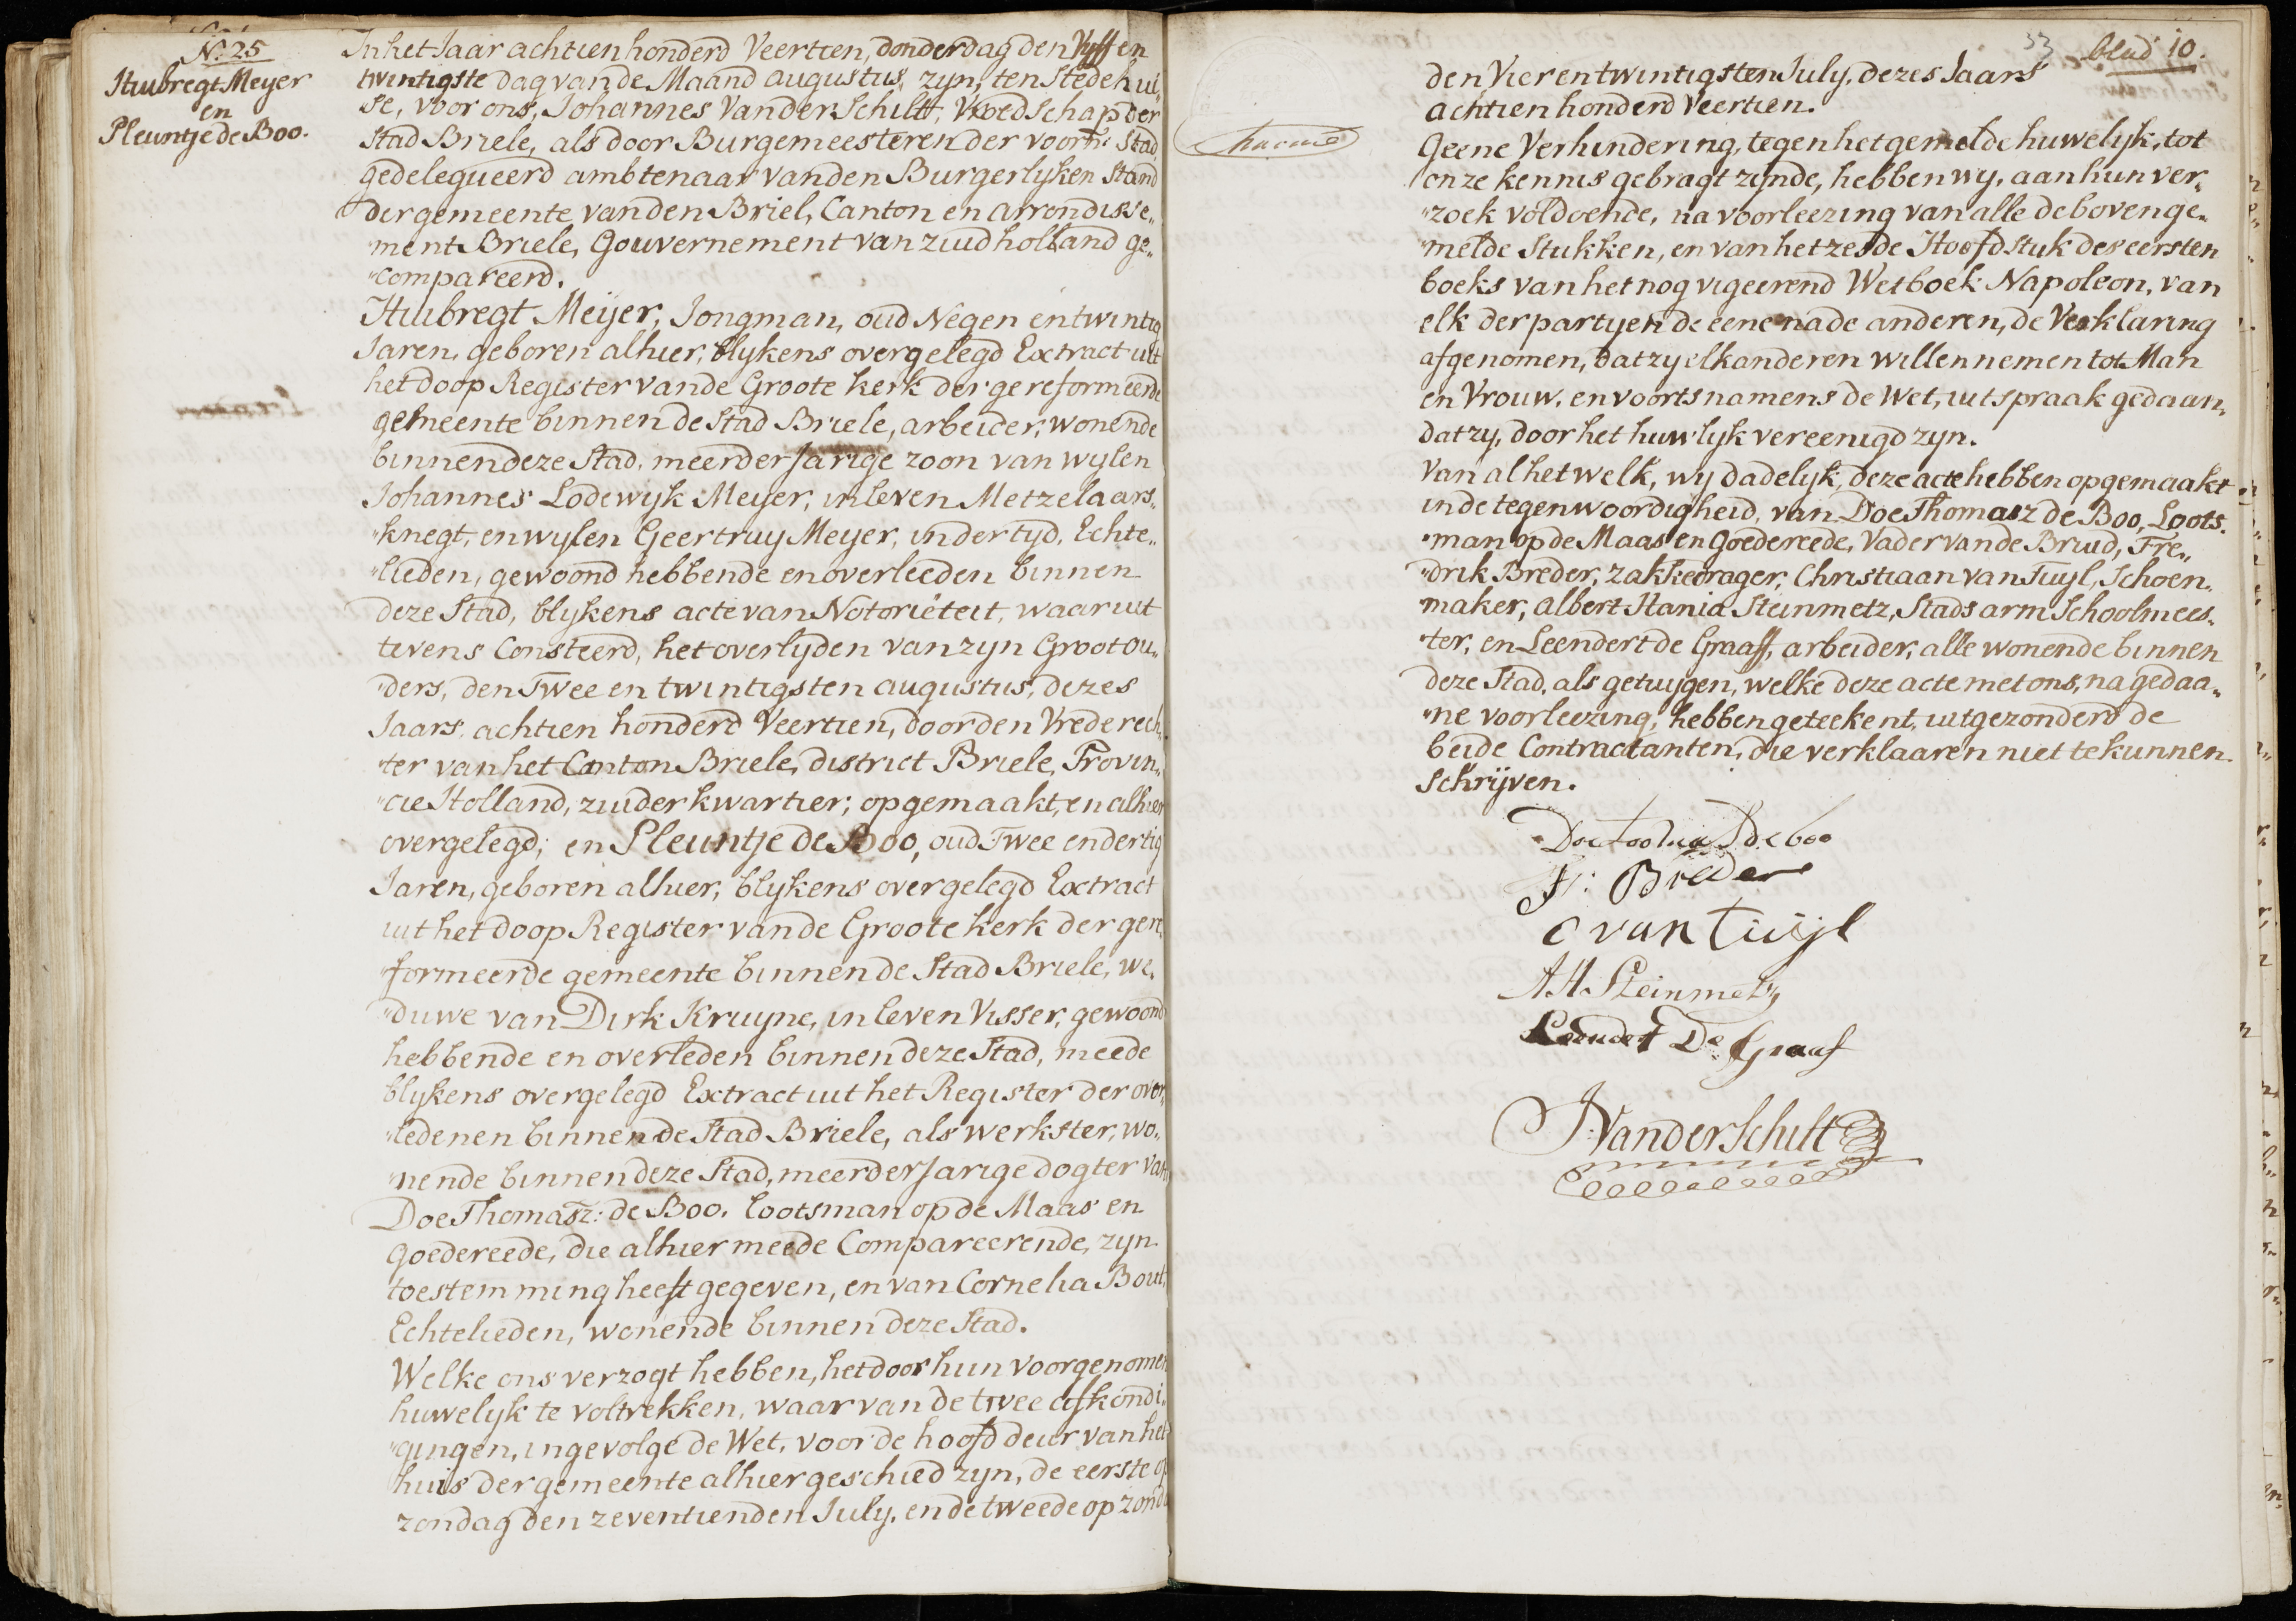 N:25
Huibregt Meyer
en
Pleuntje de Boo.
In het Jaar achtien honderd Veertien, donderdag den Vyff en
twintigste dag van de Maand augustus, zyn, ten Stedehui„
se, voor ons, Johannes Vander Schilt, Vroedschap der
Stad Briele, als door Burgemeesteren der voorn: Stad,
gedelegueerd ambtenaar vanden Burgerlyken Stand
der gemeente vanden Briel, Canton en arrondisse„
ment Briele, Gouvernement van zuidholland ge„
„compareerd.
Huibregt Meijer, Jongman, oud Negen en twintig
Jaren, geboren alhier, blykens overgelegd Extract uit
het doop Register vande Groote kerk der gereformeerde
gemeente binnen de Stad Briele, arbeider, wonende
binnen deze Stad, meerderjarige zoon van wylen
Johannes Lodewyk Meyer, in leven Metzelaars„
„knegt, en wylen Geertruy Meyer, in der tyd, Echte„
„lieden, gewoond hebbende en overleeden binnen
deze Stad, blykens acte van Notoriëteit, waar uit
tevens Consteerd, het overlyden van zyn Grootou„
„ders, den Twee en twintigsten augustus, dezes
Jaars, achtien honderd Veertien, door den Vrederech„
„ter van het Canton Briele, district Briele, Provin„
„cie Holland, zuiderkwartier, opgemaakt, en alhier
overgelegd; en Pleuntje de Boo, oud Twee en dertig
Jaren, geboren alhier, blykens overgelegd Extract
uit het doop Register vande Groote kerk der gere„
„formeerde gemeente binnen de Stad Briele, we„
„duwe van Dirk Kruyne, in leven Visser, gewoond
hebbende en overleden binnen deze Stad, meede
blykens overgelegd Extract uit het Register der over„
„ledenen binnen de Stad Briele, als werkster, wo„
„nende binnen deze Stad, meerderjarige dogter van
Doe Thomasz: de Boo, Lootsman op de Maas en
Goedereede, die alhier meede Compareerende, zyn
toestemming heeft gegeven, en van Cornelia Bout,
Echtelieden, wonende binnen deze Stad.
Welke ons verzogt hebben, het door hun voorgenomen
huwelyk te voltrekken, waar van de twee afkondi„
„gingen, ingevolge de Wet, voor de hoofd deur van het
huis der gemeente alhier geschied zyn, de eerste op
zondag den zeventienden July, en de tweede op zonda
33 blad 10.
den Vier en twintigsten July, dezes Jaars
achtien honderd Veertien.
Geene Verhindering, tegen het gemelde huwelyk, tot
onze kennis gebragt zynde, hebben wy, aan hun ver„
„zoek voldoende, na voorleezing van alle de bovenge„
„melde Stukken, en van het zesde Hoofdstuk des eersten
boeks van het nog vigeerend Wetboek Napoleon, van
elk der partyen de eene na de anderen, de Verklaring
afgenomen, dat zy elkanderen willen nemen tot Man
en Vrouw, en voorts namens de Wet, uitspraak gedaan,
dat zy, door het huwlyk vereenigd zyn.
Van al het welk, wy dadelyk, deze acte hebben opgemaakt
in de tegenwoordigheid, van Doe Thomasz de Boo, Loots„
„man op de Maas en Goedereede, Vader van de Bruid, Fre„
„drik Breder, zakkedrager, Christiaan van Tuyl, Schoen„
maker, Albert Hania Steinmetz, Stads arm Schoolmees„
„ter, en Leendert de Graaff, arbeider, alle wonende binnen
deze Stad, als getuygen, welke deze acte met ons, na gedaa„
„ne voorleezing, hebben geteekent, uitgezonderd de
beide Contractanten, die verklaaren niet te kunnen
schrijven.
de boo
F: Breder
C van Tuijl
A H Steinmetz
Leendert De Graaf
J: Vander Schilt